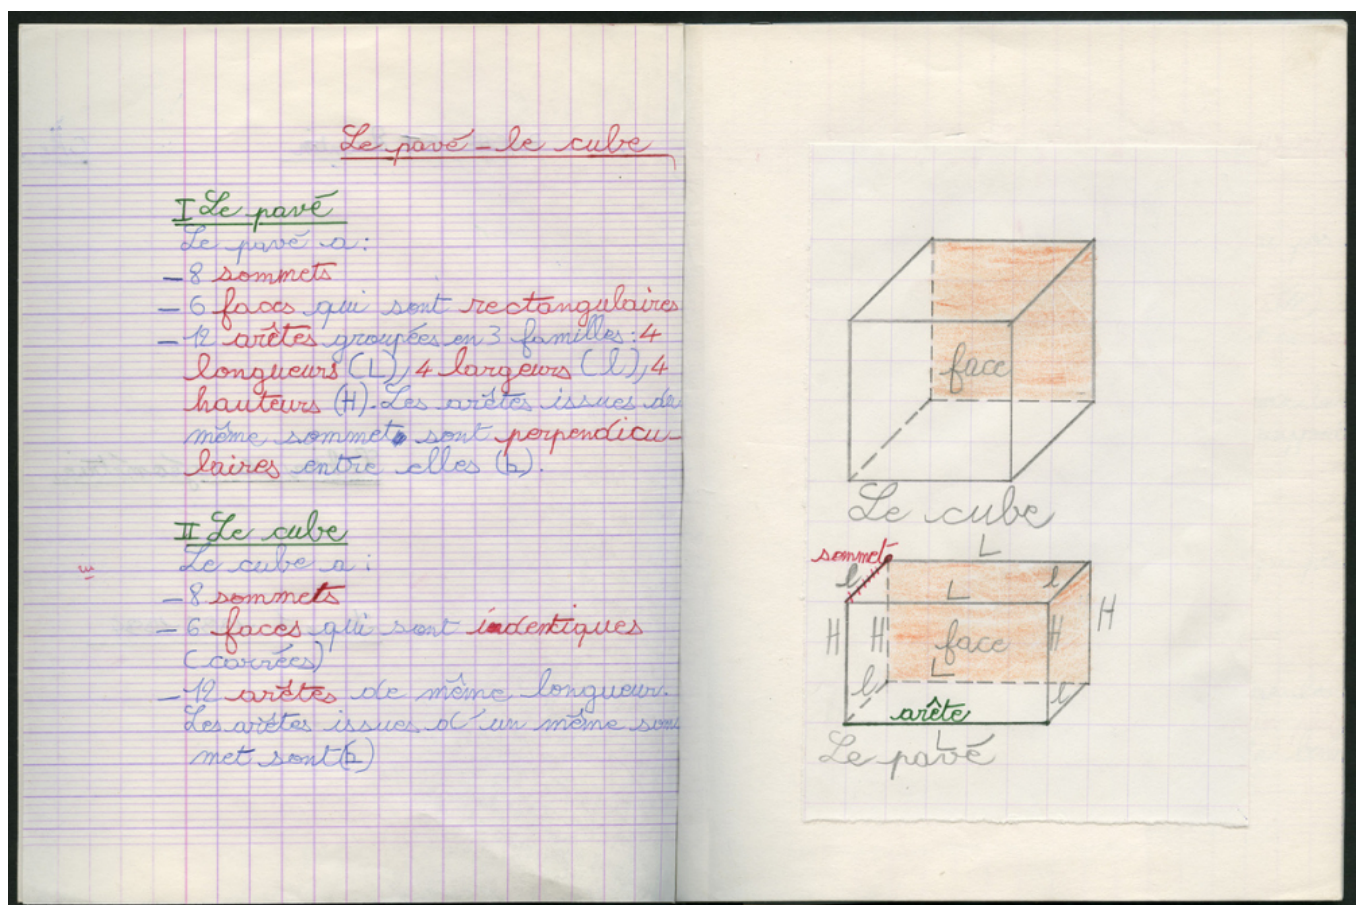 Le pavé - le cube
I Le pavé
Le pavé a :
- 8 sommets
- 6 faces qui sont rectangulaires
- 12 arêtes groupées en 3 familles : 4
longueurs (L), 4 largeurs (l), 4
hauteurs (H). Les arêtes issues de
même sommet sont perpendicu-
laires entre elles (b).
II Le cube
Le cube a :
- 8 sommets
- 6 faces qui sont indentiques
(carrées)
- 12 arêtes de même longueur.
Les arêtes issues d'un même som
met sont (b)
face
Le cube
L
sommet
l
l
L
H
H
face
H
H
L
l
l
arête
L
Le pavé